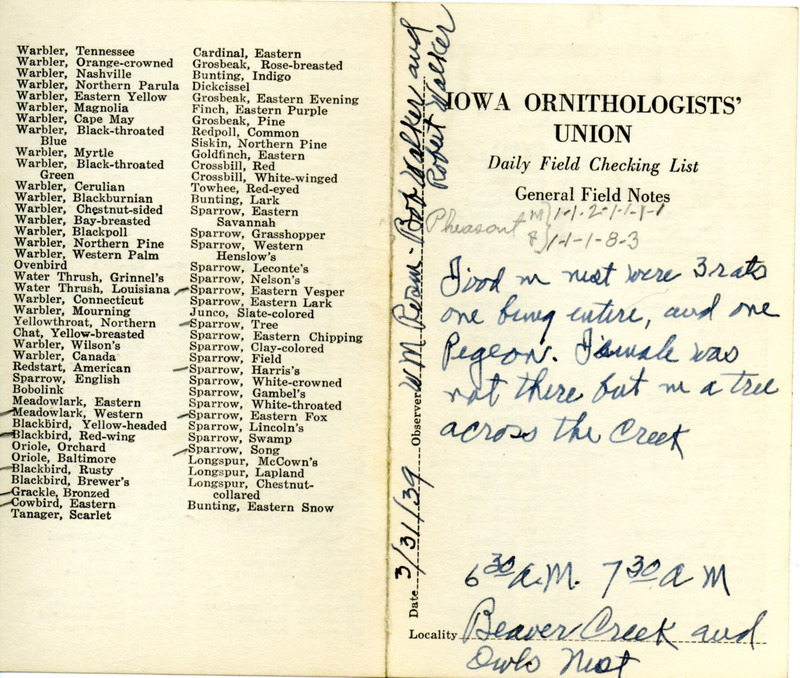 Warbler, Tennessee
Warbler, Orange-crowned
Warbler, Nashville
Warbler, Northern Parula
Warbler, Eastern Yellow
Warbler, Magnolia
Warbler, Cape May
Warbler, Black-throated
Blue
Warbler, Myrtle
Warbler, Black-throated
Green
Warbler, Cerulian
Warbler, Blackburnian
Warbler, Chestnut-sided
Warbler, Bay-breasted
Warbler, Blackpoll
Warbler, Northern Pine
Warbler, Western Palm
Ovenbird
Water Thrush, Grinnel's
Water Thrush, Louisiana
Warbler, Connecticut
Warbler, Mourning
Yellowthroat, Northern
Chat, Yellow-breasted
Warbler, Wilson's
Warbler, Canada
Redstart, American
Sparrow, English
Bobolink
Meadowlark, Eastern
Meadowlark, Western
Blackbird, Yellow-headed
Blackbird, Red-wing
Oriole, Orchard
Oriole, Baltimore
Blackbird, Rusty
Blackbird, Brewer's
Grackle, Bronzed
Cowbird, Eastern
Tanager, Scarlet
Cardinal, Eastern
Grosbeak, Rose-breasted
Bunting, Indigo
Dickcissel
Grosbeak, Eastern Evening
Finch, Eastern Purple
Grosbeak, Pine
Redpoll, Common
Siskin, Northern Pine
Goldfinch, Eastern
Crossbill, Red
Crossbill, White-winged
Towhee, Red-eyed
Bunting, Lark
Sparrow, Eastern
Savannah
Sparrow, Grasshopper
Sparrow, Western
Henslow's
Sparrow, Leconte's
Sparrow, Nelson's
Sparrow, Eastern Vesper
Sparrow, Eastern Lark
Junco, Slate-colored
Sparrow, Tree
Sparrow, Eastern Chipping
Sparrow, Clay-colored
Sparrow, Field
Sparrow, Harris's
Sparrow, White-crowned
Sparrow, Gambel's
Sparrow, White-throated
Sparrow, Eastern Fox
Sparrow, Lincoln's
Sparrow, Swamp
Sparrow, Song
Longspur, McCown's
Longspur, Lapland
Longspur, Chestnut-
collared
Bunting, Eastern Snow
Date 3/31/39 Observer WM Rosin - Bob Walker and
Robert Walker
IOWA ORNITHOLOGISTS'
UNION
Daily Field Checking List
General Field Notes
Pheasant M) 1-1-2-1-1-1-1
F) 1-1-1-8-3
Food in nest were 3 rats
one being entire, and one
Pigeon. Female was
not there but in a tree
across the Creek
6 30 A.M. 7 30 A M
Locality Beaver Creek and
Owls Nest